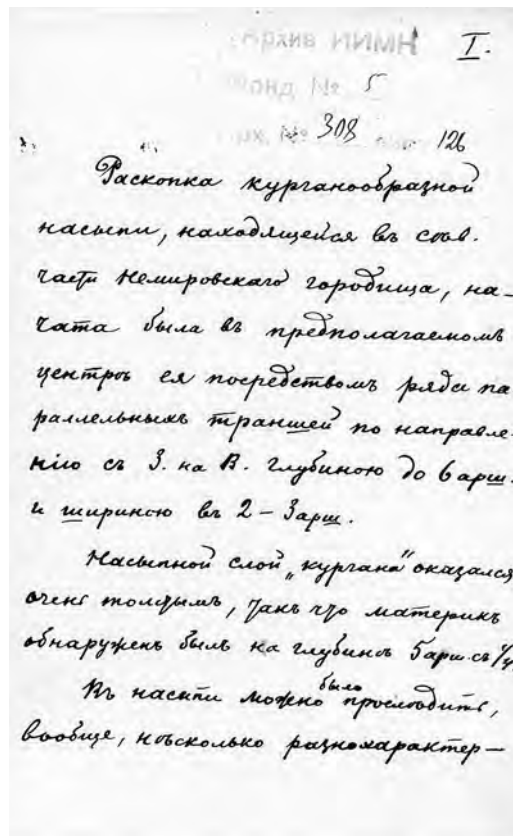 НМИИ архив I.
фонд № 5
№ 308 126
Раскопка курганообразной
насыпи, находящейся въ сѣв.
части Немировскаго городища, на-
чата была въ предполагаемомъ
центрѣ ея посредствомъ ряда па
раллельныхъ траншей по направле
нію съ З. на В. глубиною до 6 арш.
и шириною въ 2 – 3 арш.
Насыпной слой „кургана" оказался
очень толстымъ, такъ что материкъ
обнаруженъ былъ на глубинѣ 5 арш. съ 1/4
Въ насыпи можно было прослѣдить,
вообще, нѣсколько разнохарактер–